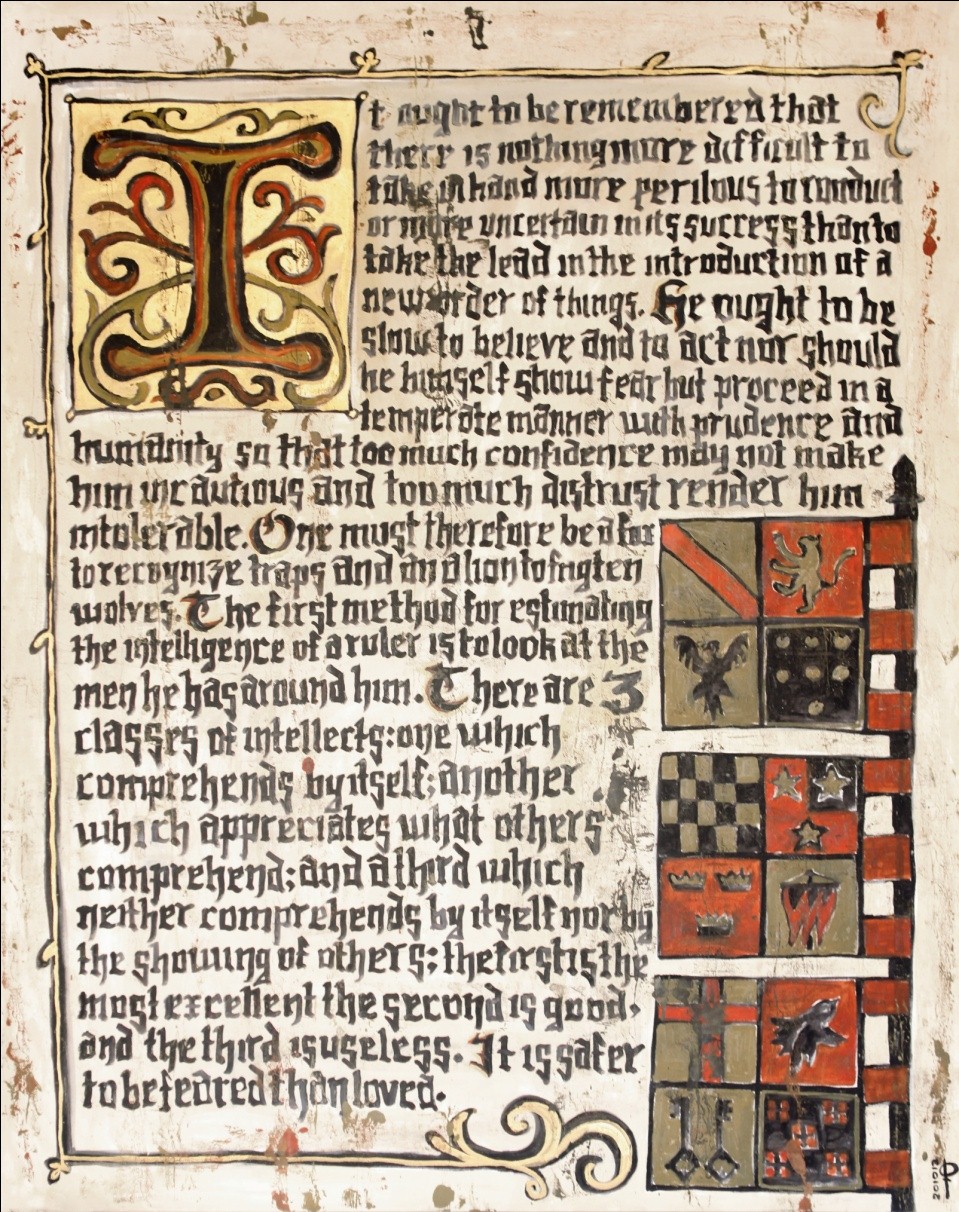 It ought to be remembered that
there is nothing more difficult to
take in hand more perilous to conduct
or more uncertain in its success than to
take the lead in the introduction of a
new order of things. He ought to be
slow to believe and to act nor should
he himself show fear but proceed in a
temperate manner with prudence and
humanity so that too much confidence may not make
him incautious and too much distrust render him
intolerable. One must therefore be a fox
to recognize traps and an a lion to frigten
wolves. The first method for estimating
the intelligence of a ruler is to look at the
men he has around him. There are 3
classes of intellects: one which
comprehends by itself; another
which appreciates what others
comprehend; and a third which
neither comprehends by itself nor by
the showing of others; the first is the
most excellent the second is good,
and the third is useless. It is safer
to be feared than loved.